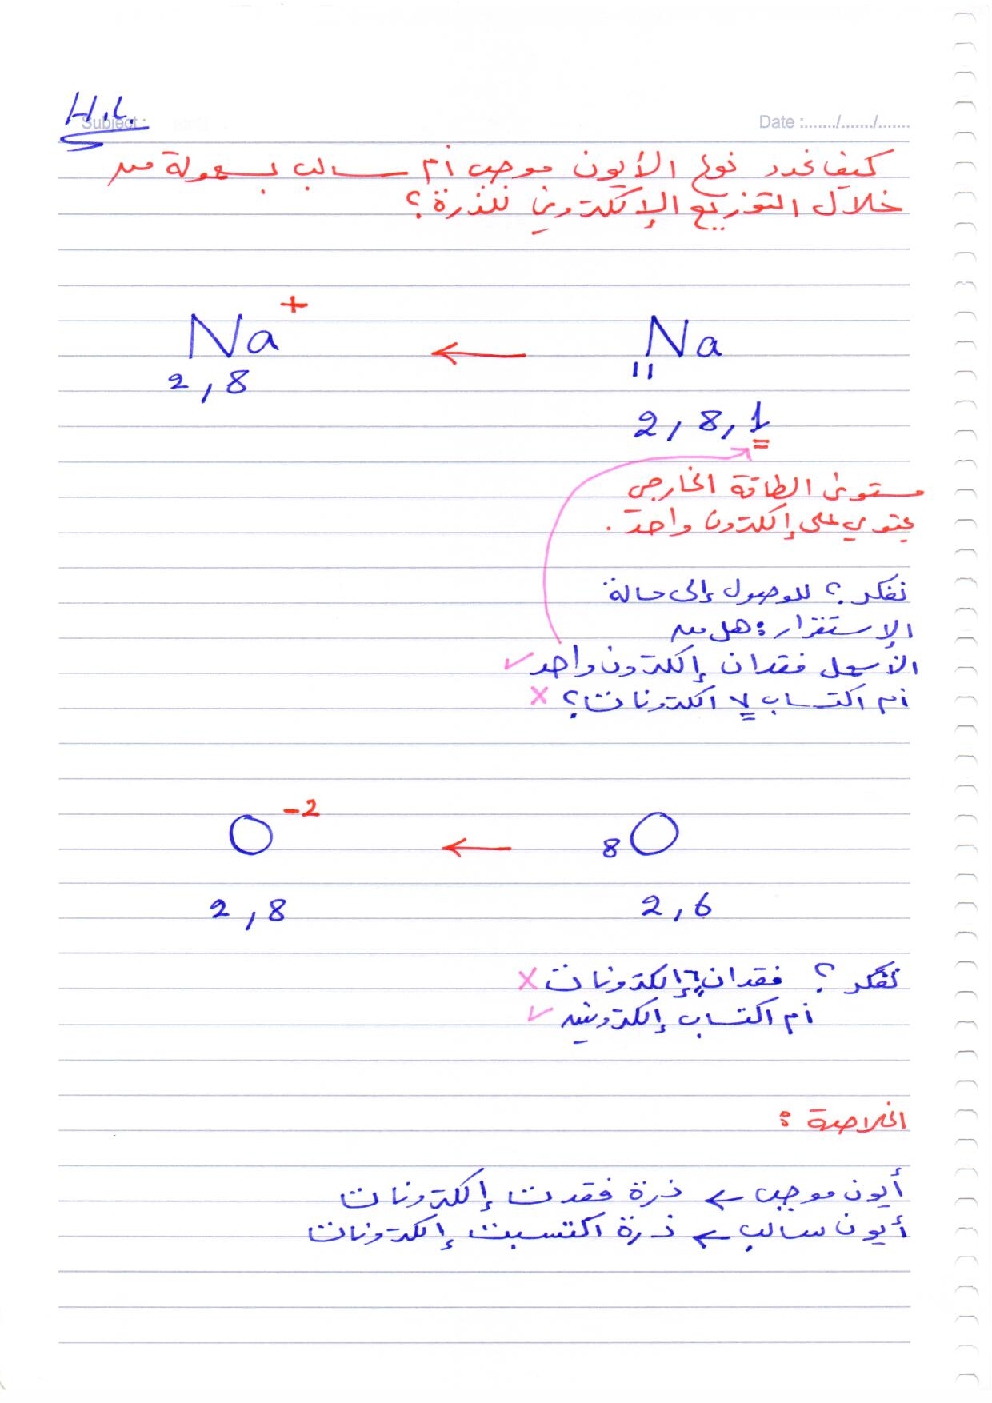 H.L.
Subject :
Date :....../......./.......
كيف نحدد نوع الأيون موجب أم سالب بسهولة من
خلال التوزيع الإلكتروني للذرة ؟
Na⁺ ← ₁₁Na
2 , 8
2 , 8 , 1
مستوى الطاقة الخارجي
يحتوي على إلكترون واحد .
نفكر ؟ للوصول إلى حالة
الإستقرار : هل من
الأسهل فقدان إلكترون واحد ✓
أم اكتساب 7 الكترونات ؟ ×
O⁻² ← ₈O
2 , 8
2 , 6
نفكر ؟ فقدان 6 إلكترونات ×
أم اكتساب إلكترونين ✓
الخلاصة :
أيون موجب ← ذرة فقدت إلكترونات
أيون سالب ← ذرة اكتسبت إلكترونات